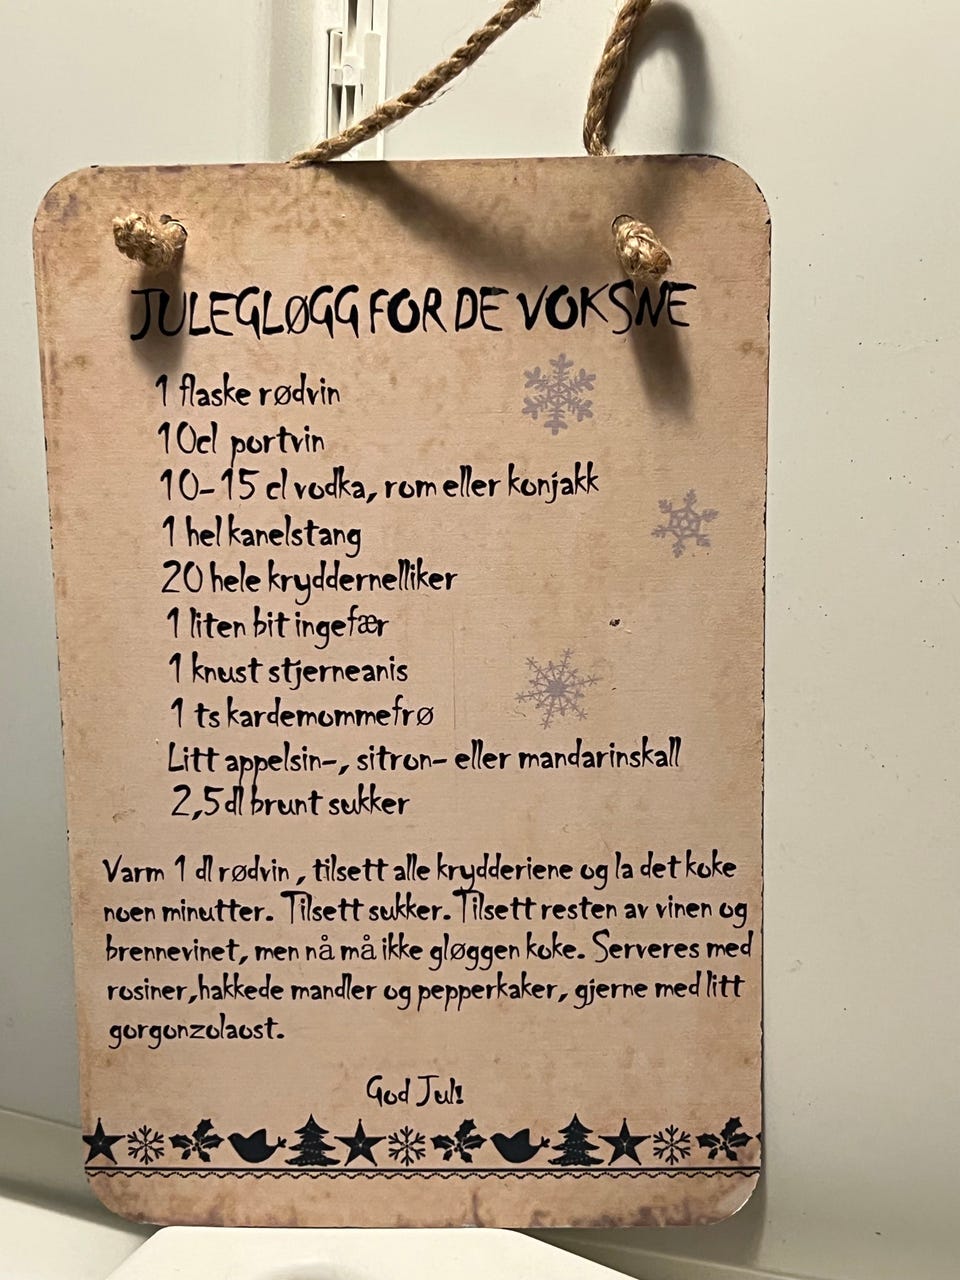 JULEGLØGG FOR DE VOKSNE
1 flaske rødvin
10cl portvin
10-15 cl vodka, rom eller konjakk
1 hel kanelstang
20 hele kryddernelliker
1 liten bit ingefær
1 knust stjerneanis
1 ts kardemommefrø
Litt appelsin-, sitron- eller mandarinskall
2,5 dl brunt sukker
Varm 1 dl rødvin , tilsett alle krydderiene og la det koke
noen minutter. Tilsett sukker. Tilsett resten av vinen og
brennevinet, men nå må ikke gløggen koke. Serveres med
rosiner, hakkede mandler og pepperkaker, gjerne med litt
gorgonzolaost.
God Jul!